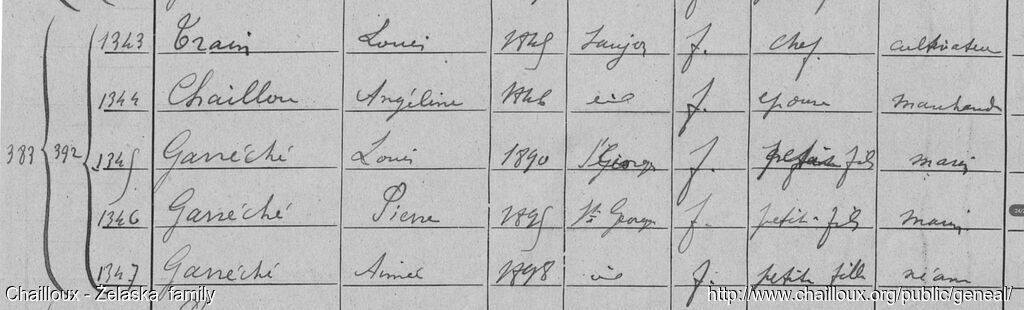 1343 Train Louis 1845 Saujon f. chef cultivateur
1344 Chaillou Angéline 1846 id f. epouse marchande
383 392 1345 Garréché Louis 1890 St Georges f. petit fils marin
1346 Garréché Pierre 1895 St Georges f. petit-fils marin
1347 Garréché Aimée 1898 id f. petite fille néant
Chailloux - Żelaska family
http://www.chailloux.org/public/geneal/